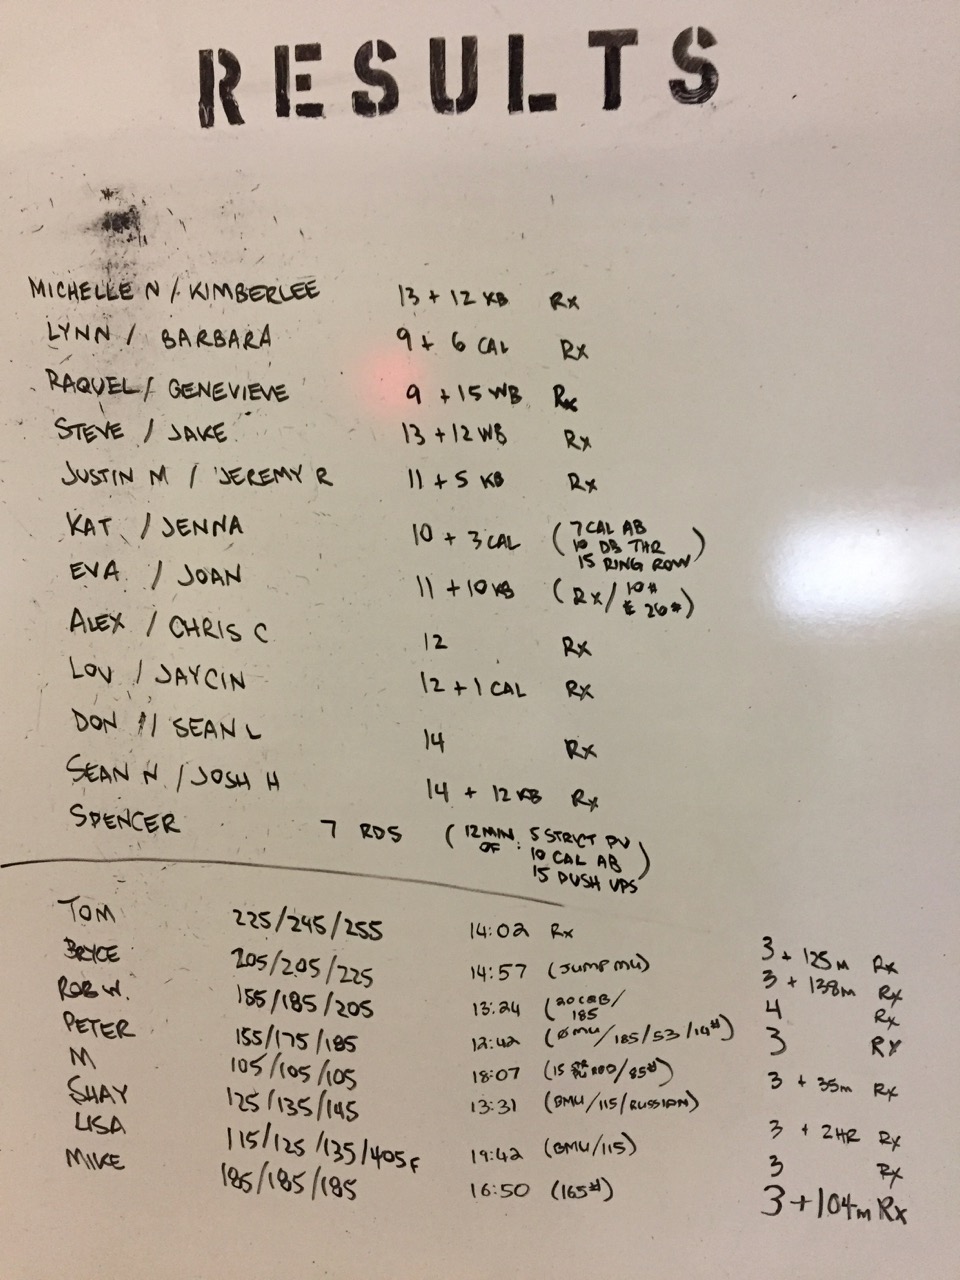 RESULTS
MICHELLE N / KIMBERLEE 13 + 12 KB Rx
LYNN / BARBARA 9 + 6 CAL Rx
RAQUEL / GENEVIEVE 9 + 15 WB Rx
STEVE / JAKE 13 + 12 WB Rx
JUSTIN M / JEREMY R 11 + 5 KB Rx
KAT / JENNA 10 + 3 CAL (7 CAL AB
10 DB THR
15 RING ROW)
EVA / JOAN 11 + 10 KB (Rx / 10#
& 26#)
ALEX / CHRIS C 12 Rx
LOU / JAYCIN 12 + 1 CAL Rx
DON // SEAN L 14 Rx
SEAN N / JOSH H 14 + 12 KB Rx
SPENCER 7 RDS (12 MIN OF: 5 STRICT PU
10 CAL AB
15 PUSH UPS)
TOM 225/245/255 14:02 Rx 3 + 125m Rx
BRYCE 205/205/225 14:57 (JUMP MU) 3 + 138m Rx
ROB W. 185/205 13:24 (20 / 185 4 Rx
PETER 155/175/185 12:42 (ØMU/185/53/14#) 3 RX
M 105/105/105 18:07 (15 /85#) 3 + 35m Rx
SHAY 125/135/145 13:31 (BMU/115/RUSSIAN) 3 + 2HR Rx
LISA 115/125/135/405F 19:42 (BMU/115) 3 Rx
MIKE 185/185/185 16:50 (165#) 3 + 104m Rx